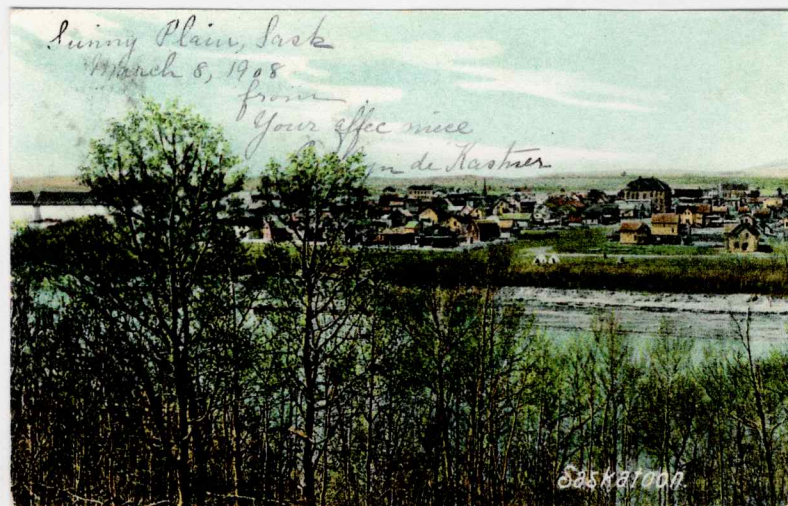 Sunny Plain, Sask
March 8, 1908
from
Your affec niece
de Kastner
Saskatoon.